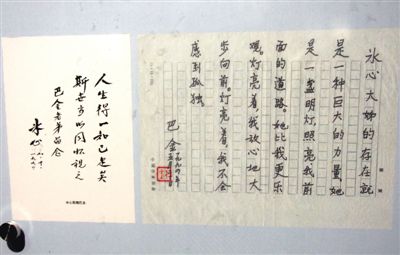 冰心大姊的存在就
是一种巨大的力量,她
是一盏明灯照亮我前
面的道路。她比我更乐
观。灯亮着,我放心地大
步向前。灯亮着,我不会
感到孤独
巴金
一九九四年
人生得一知己足矣
斯世当以同怀视之
巴金老弟留念
冰心